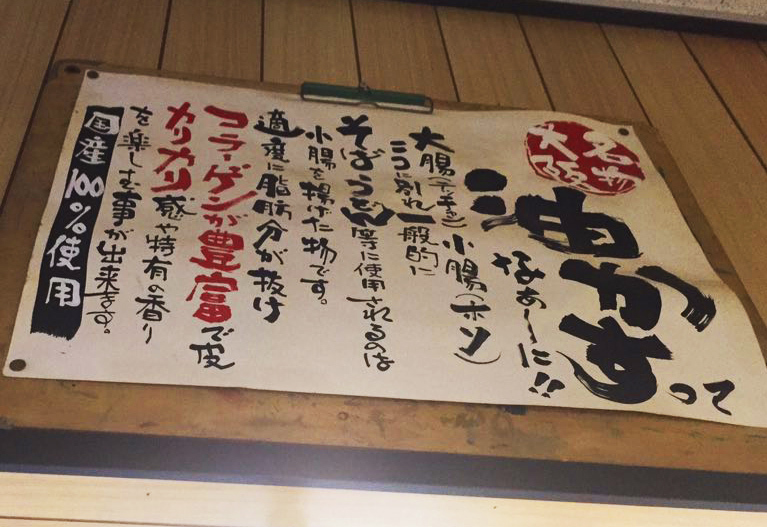 大阪名物
油かすって
なぁーに!!
大腸(テチャン)小腸(ホソ)
二つに別れ一般的に
そばうどん等に使用されるのは
小腸を揚げた物です。
適度に脂肪分が抜け
コラーゲンが豊富で皮
カリカリ感や特有の香り
を楽しむ事が出来ます。
国産100%使用